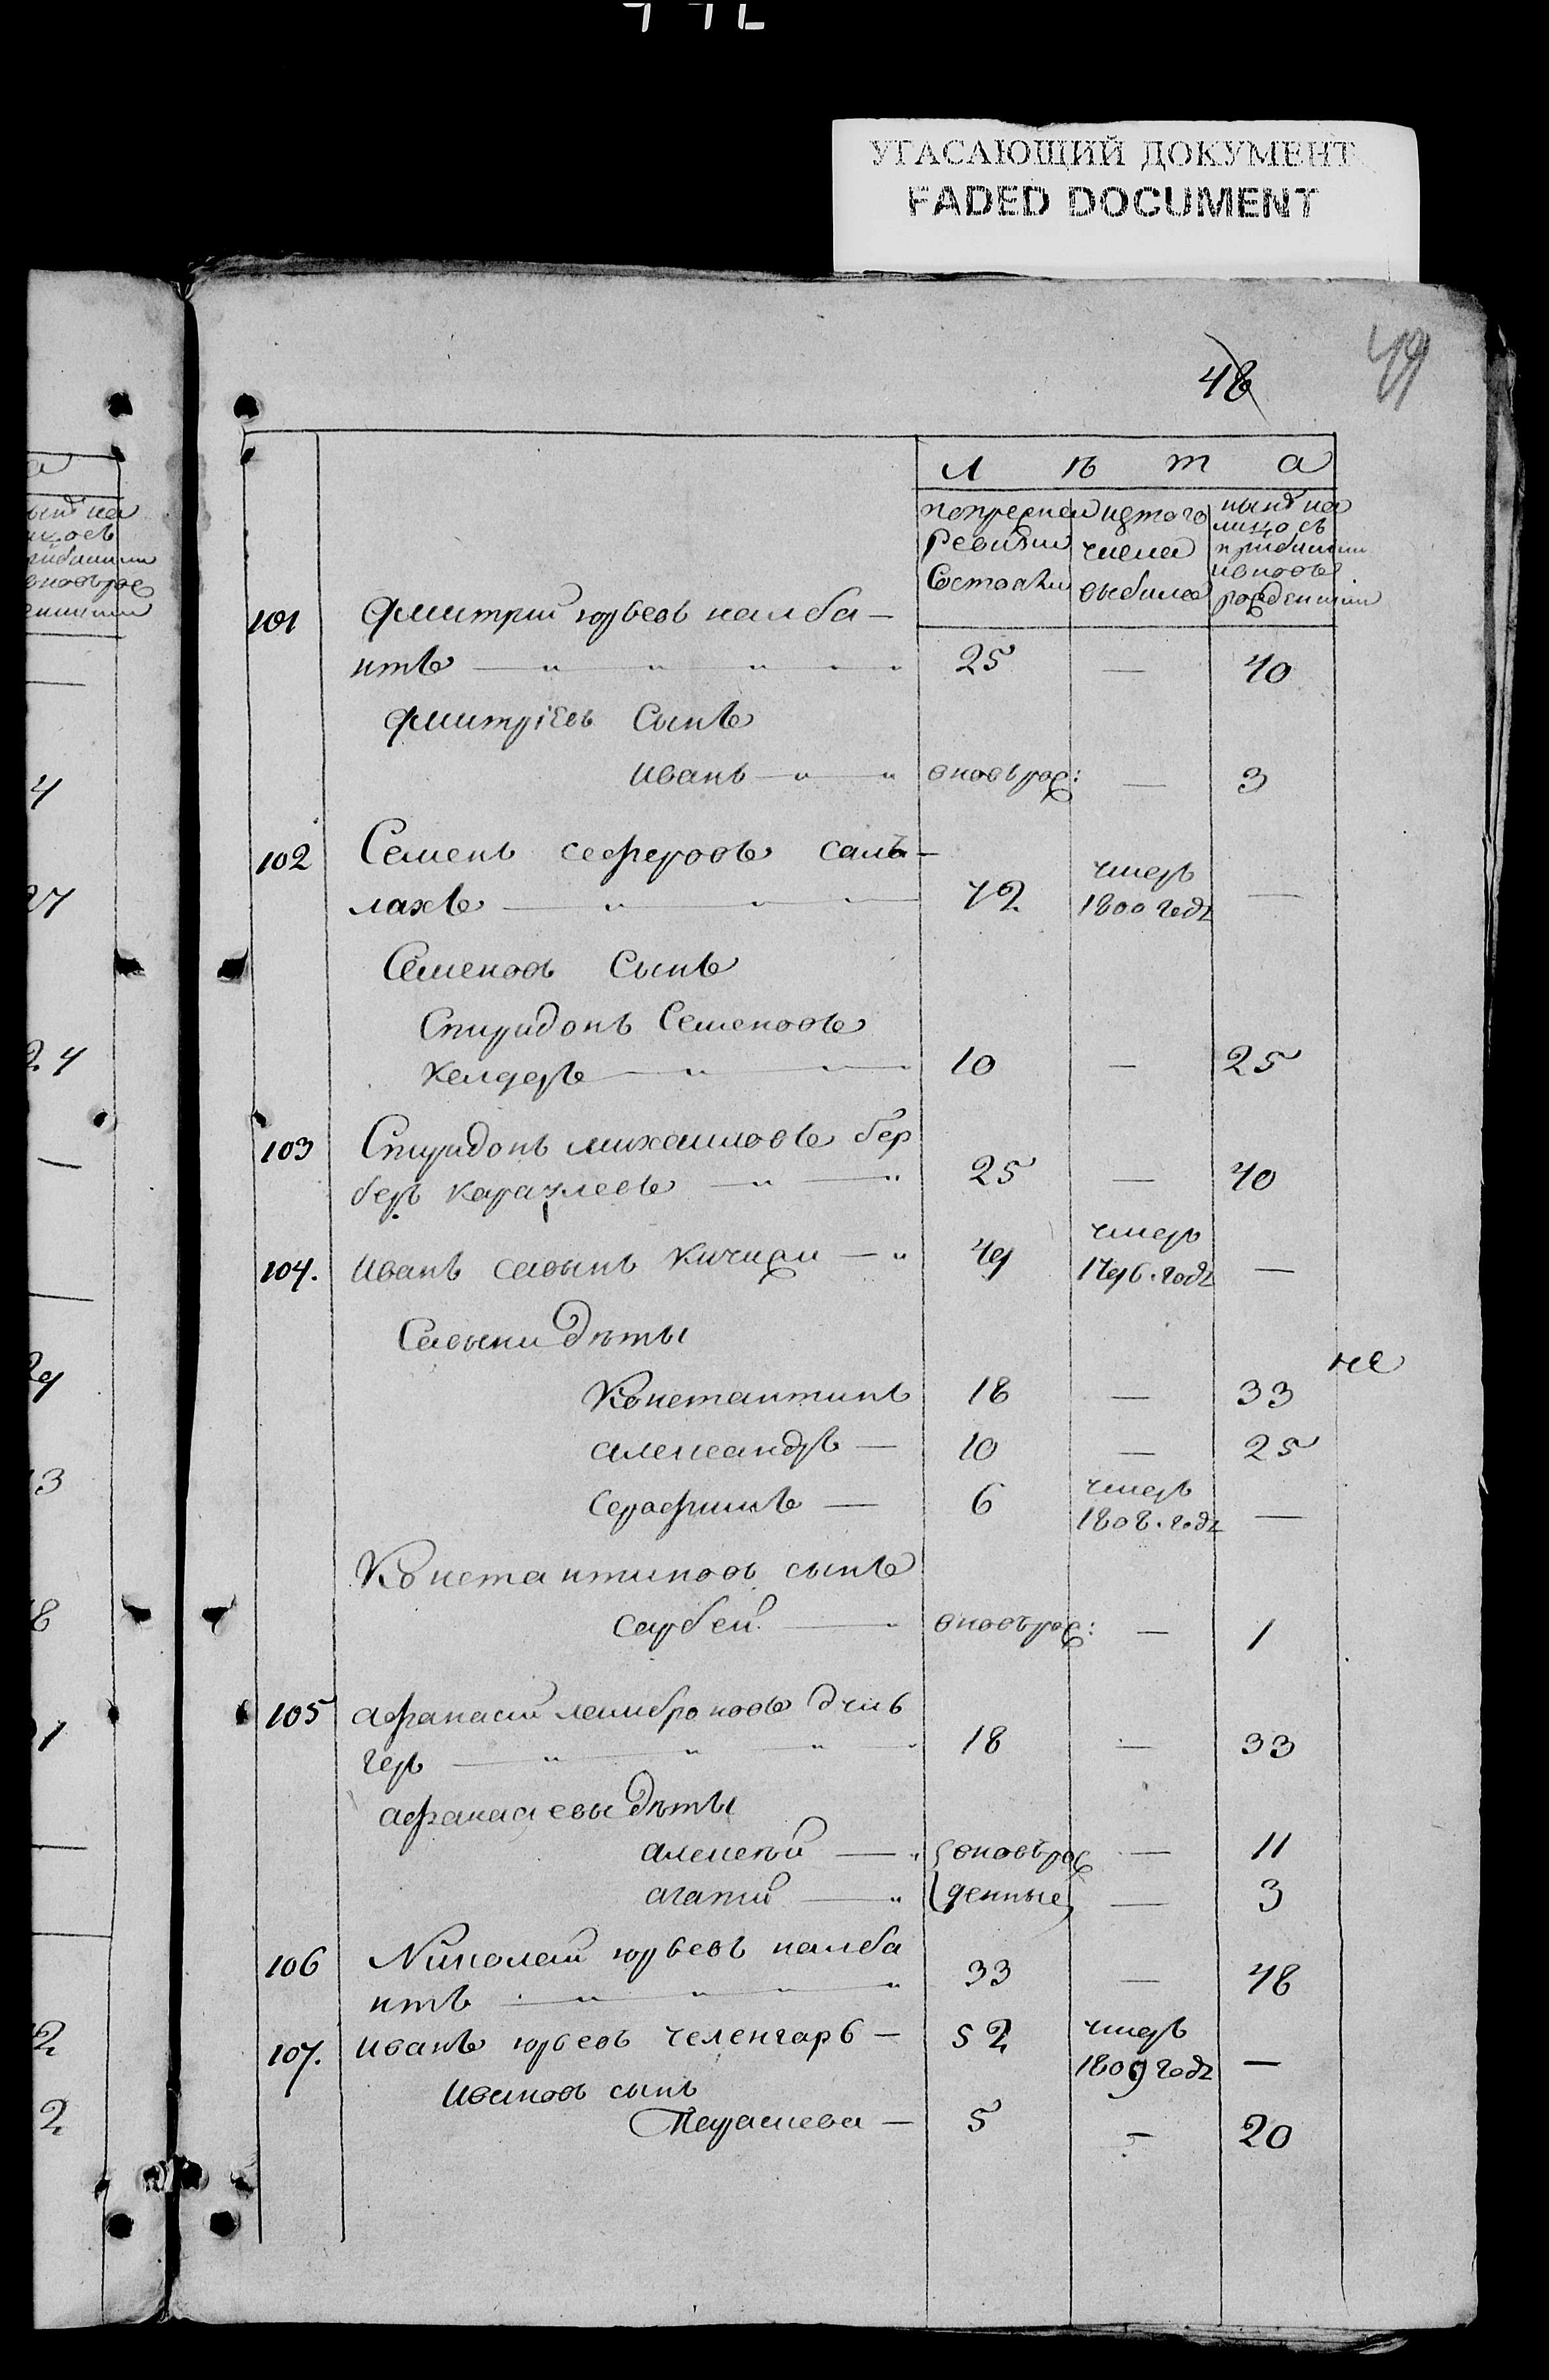 УГАСАЮЩИЙ ДОКУМЕНТ
FADED DOCUMENT
48
49
Л ѣ т а
попрежней ревизии Состояли
изтого числа выбыло
нынѣ на лицо съ прибылыми ивновь рожденными
101 Дмитрий юрьевъ калба-
итъ 25 — 40
Дмитріевъ Сынъ
иванъ вновь рож: — 3
102 Семенъ сеферовъ салъ-
лахъ 72 умеръ 1800 годѣ —
Семеновъ Сынъ
Спиридонъ Семеновъ
Келдеръ 10 — 25
103 Спиридонъ михаиловъ бер
беръ караулевъ 25 — 40
104. иванъ савынъ Кичижи 49 умеръ 1796. годѣ —
Савыни дѣты
Константинъ 18 — 33
не
александръ — 10 — 25
Серафимъ — 6 умеръ 1808. годѣ —
Константиновъ сынъ
сарбей вновьрож: — 1
105 афанасий лембрановъ дчив
геръ 18 — 33
афанасіевы дѣты
алексѣй — вновърож — 11
агапий — денные — 3
106 Николай юрьевъ калба
итъ 33 — 48
107. иванъ юрьевъ челенгарь — 52 умеръ 1809 годѣ —
ивановъ сынъ
Параскева — 5 — 20